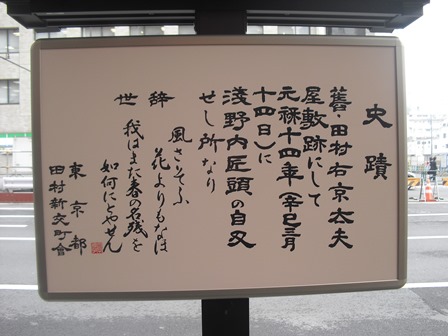 史蹟
舊・田村右京太夫
屋敷跡にして
元祿十四年(辛巳三月
十四日)に
淺野内匠頭の自刃
せし所なり
辞世
風さそふ
花よりもなほ
我はまた春の名残を
如何にとやせん
東京都
田村新交町會